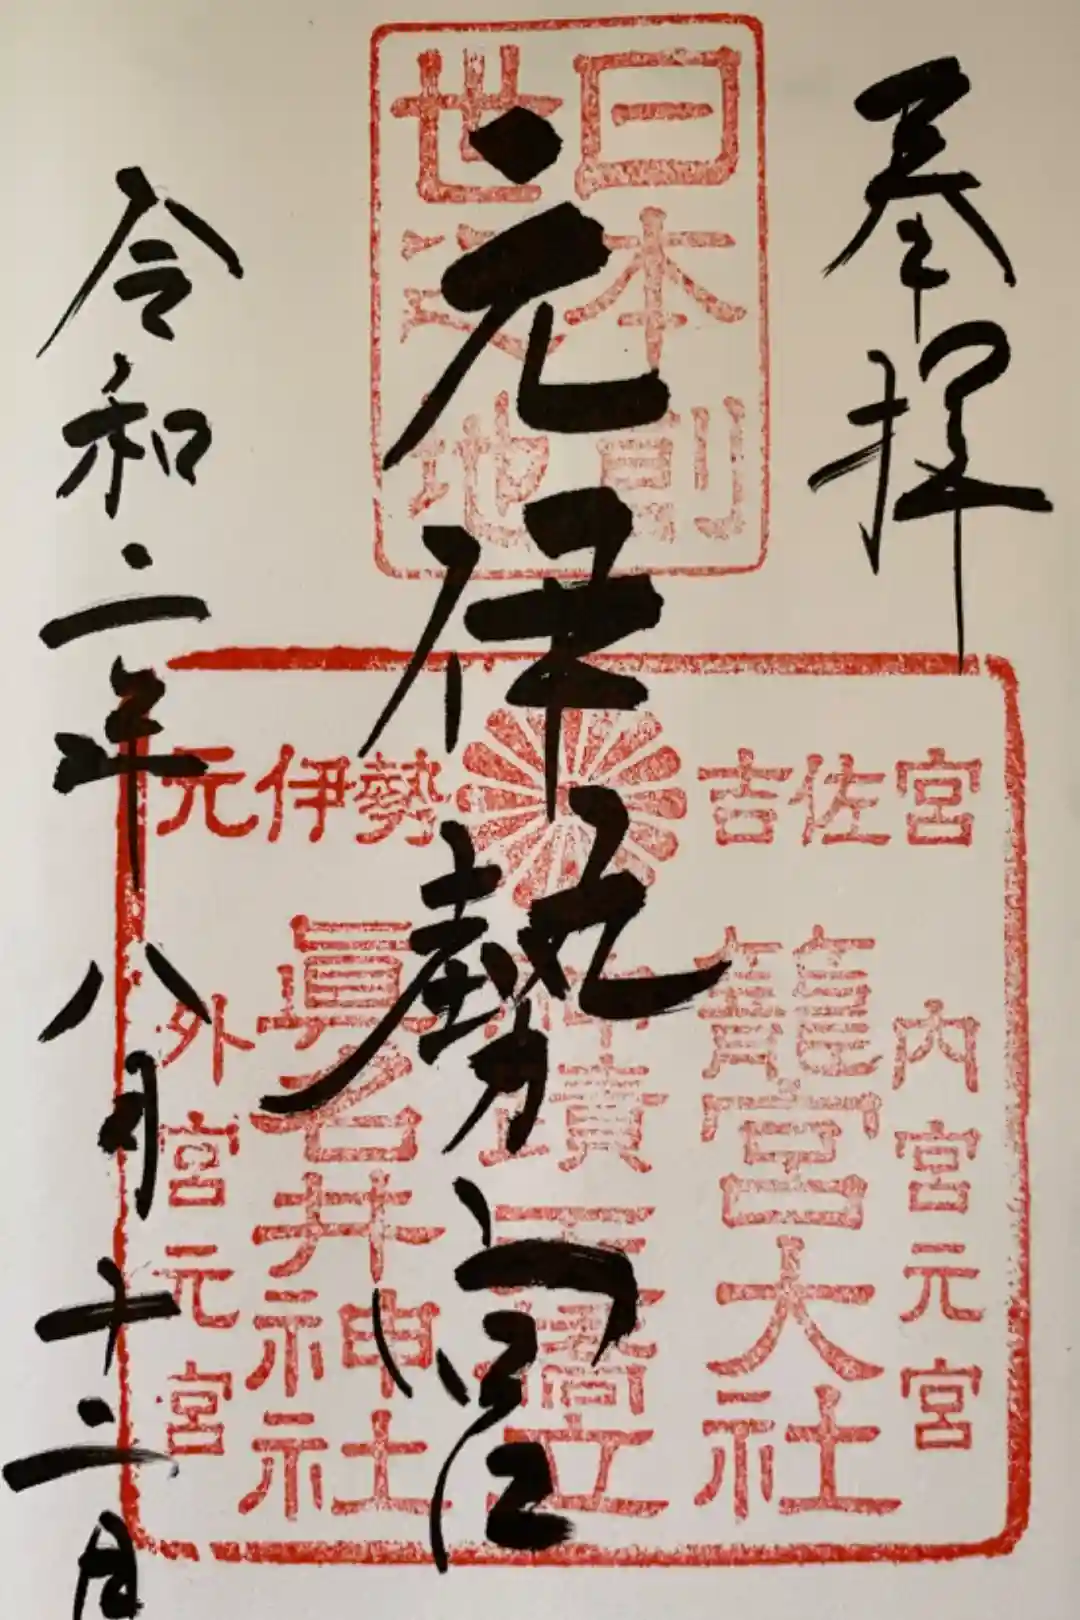 奉拝
元伊勢宮
令和二年八月十二日
日本創
世之地
元伊勢
吉佐宮
内宮元宮
籠宮大社
神蹟天橋立
眞名井神社
外宮元宮